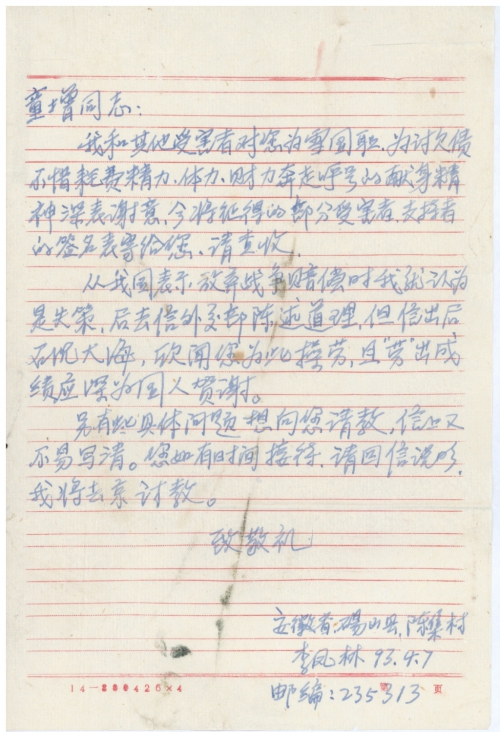 童增同志：
我和其他受害者对您为雪国耻、为讨欠债
不惜耗费精力、体力、财力奔走呼号的献身精
神深表谢意，今将征得的部分受害者、支持者
的签名表寄给您，请查收。
从我国表示放弃战争赔偿时我就认为
是失策，后去信外交部陈述道理，但信出后
石沉大海，欣闻您为此操劳，且“劳”出成
绩应深为国人贺谢。
另有些具体问题想向您请教，信上又
不易写清。您如有时间接待，请回信说明，
我将去京讨教。
致敬礼
安徽省砀山县，陈集村
李凤林 93.4.7
邮编：235313
14-200426×4 页